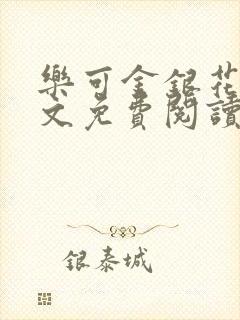 樂可金銀花
文免費閱讀
銀泰城